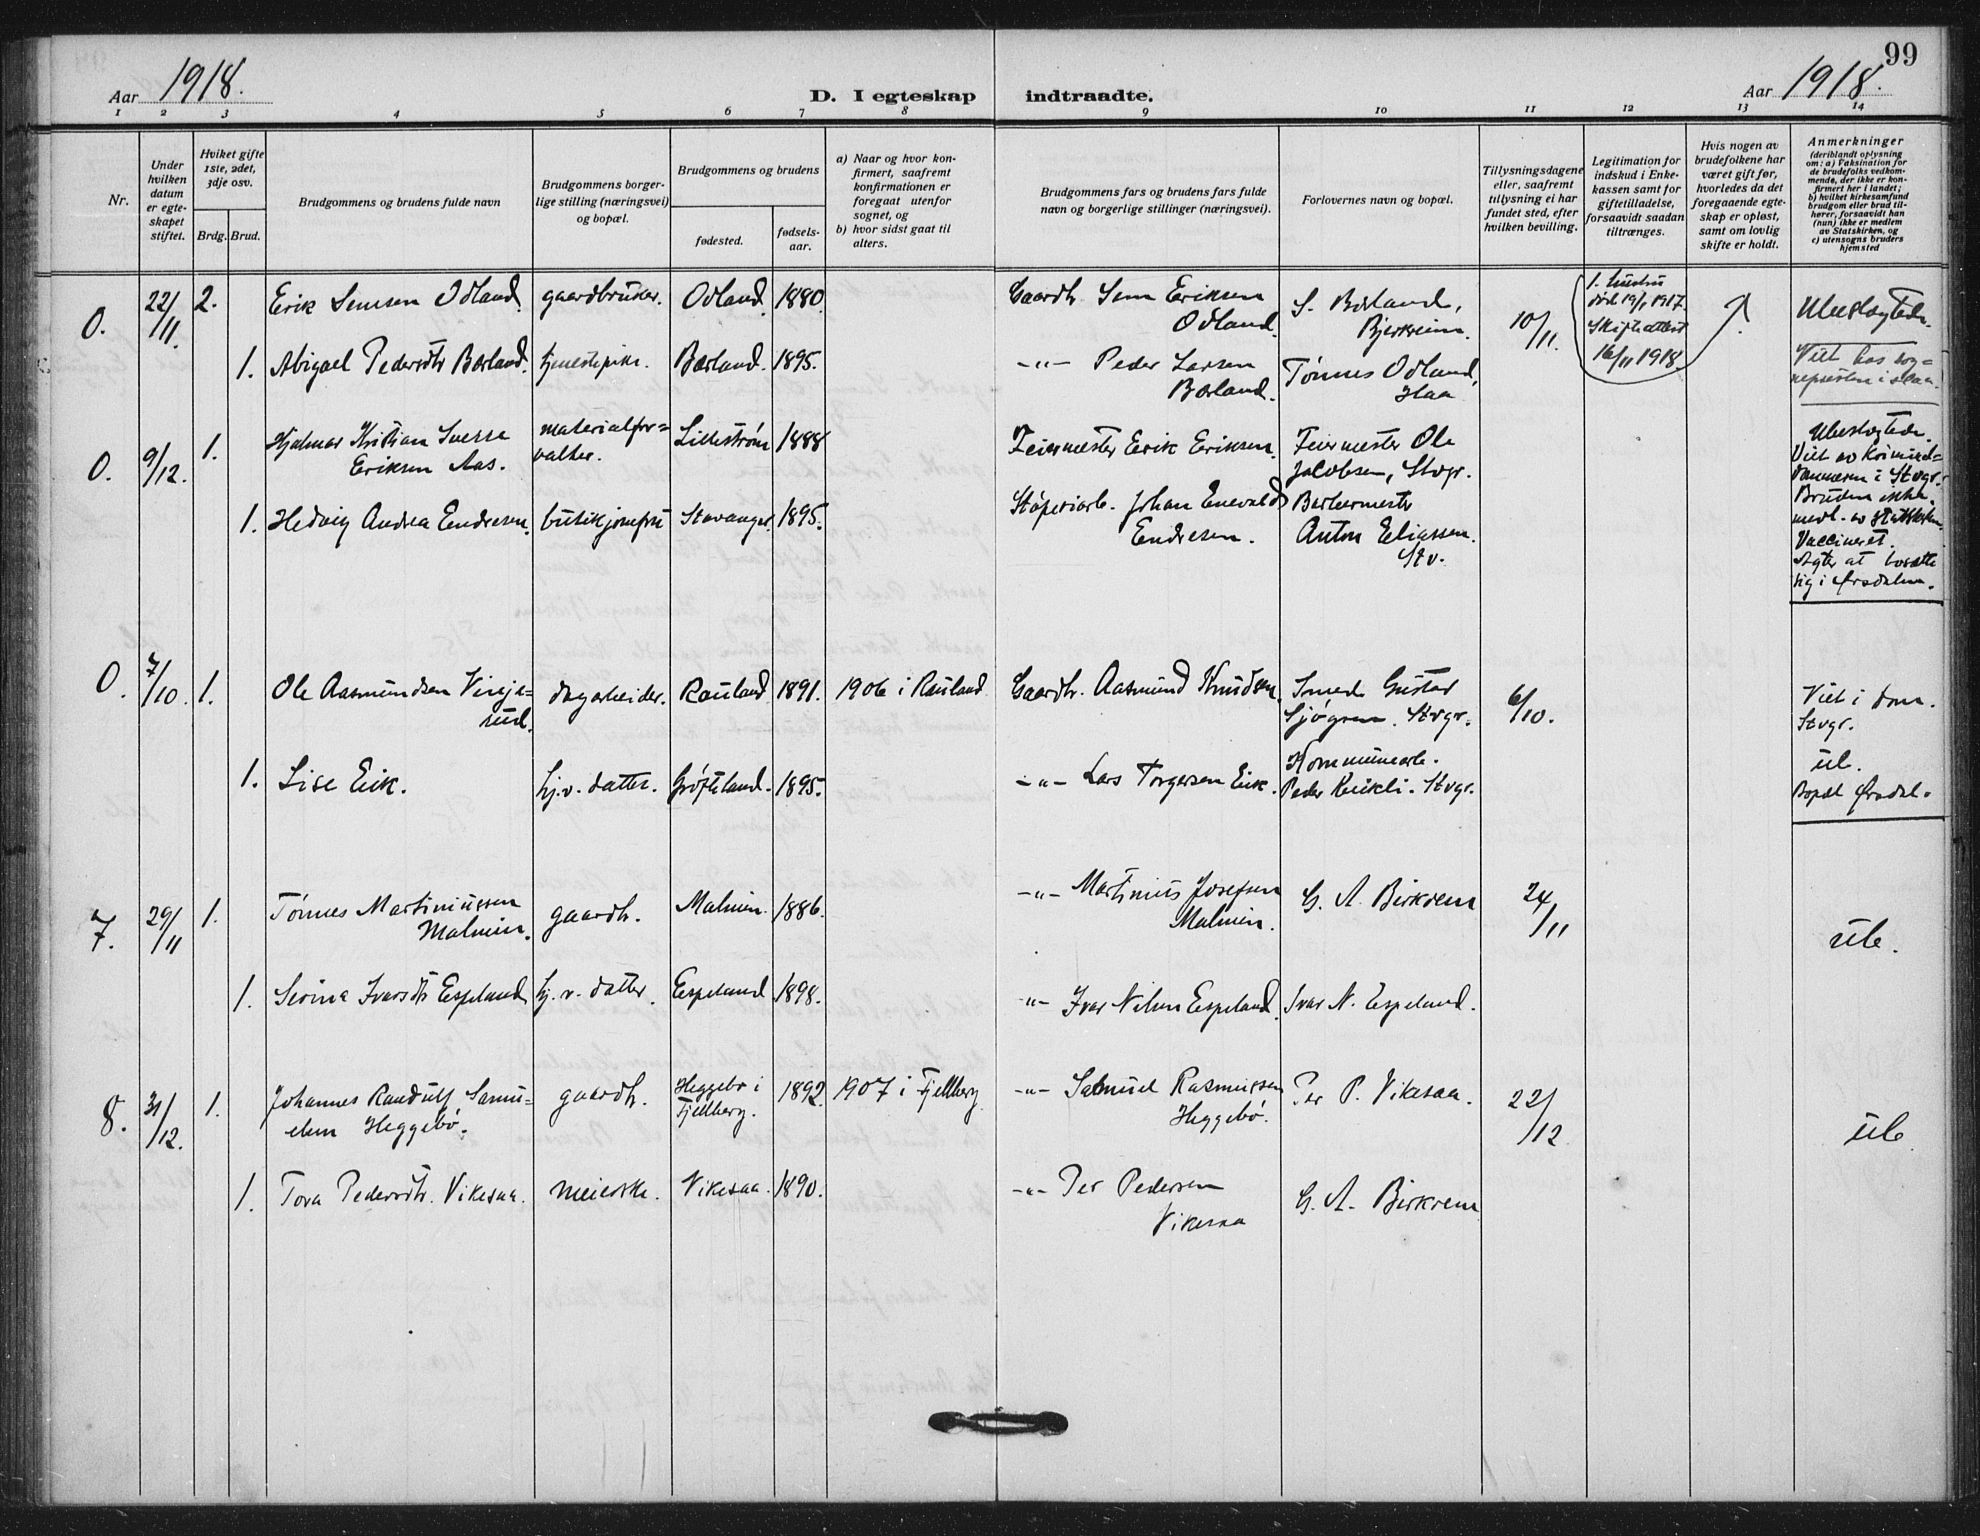 99
Aar 1918.
D. I egteskap indtraadte.
Aar 1918.
1 2 3 4 5 6 7 8 9 10 11 12 13 14
Nr.
Under
hvilken
datum
er egte-
skapet
stiftet.
Hviket gifte
1ste, 2det,
3dje osv.
Brdg. Brud.
Brudgommens og brudens fulde navn
Brudgommens borger-
lige stilling (næringsvei)
og bopæl.
Brudgommens og brudens
fødested.
fødsels-
aar.
a) Naar og hvor kon-
firmert, saafremt
konfirmationen er
foregaat utenfor
sognet, og
b) hvor sidst gaat til
alters.
Brudgommens fars og brudens fars fulde
navn og borgerlige stillinger (næringsvei).
Forlovernes navn og bopæl.
Tillysningsdagene
eller, saafremt
tillysning ei har
fundet sted, efter
hvilken bevilling.
Legitimation for
indskud i Enke-
kassen samt for
giftetilladelse,
forsaavidt saadan
tiltrænges.
Hvis nogen av
brudefolkene har
været gift før,
hvorledes da det
foregaaende egte-
skap er opløst,
samt om lovlig
skifte er holdt.
Anmerkninger
(deriblandt oplysning
om: a) Vaksination for
de brudefolks vedkom-
mende, der ikke er kon-
firmert her i landet;
b) hvilket kirkesamfund
brudgom eller brud til-
hører, forsaavidt han
(hun) ikke er medlem
av Statskirken, og
c) utensogns bruders
hjemsted
0. 22/11. 2. Erik Semsen Odland. gaardbruker. Odland. 1880.
Gaardbr. Sem Eriksen
Odland.
S. Børland,
Bjerkreim.
10/11.
død 19/1 1917.
Skifteattest
16/11 1918.
Ubeslegtede.
1. Abigael Pedersdtr Børland. tjenestepike. Børland. 1895.
-"- Peder Larsen
Børland.
Tønnes Odland,
Haa
Viet hos sog-
nepresten i Haa.
0. 9/12. 1. Hjalmar Kristian Sverre
Eriksen Aas.
materialfor-
valter.
Lillestrøm 1888
Feiermester Erik Eriksen.
Feiermester Ole
Jacobsen, Stvgr.
Ubeslegtede.
Viet av Kriminel-
dommeren i Stvgr.
Bruden ikke
medl. av statskirken.
Vaccineret.
Agter at bosætte
sig i Ørsdalen.
1. Hedvig Andrea Endresen. butikjomfru Stavanger. 1895.
Støperiarb. Johan Enevald
Endresen.
Barbermester
Anton Eliassen.
Stv.
0. 7/10. 1. Ole Aasmundsen Vinje-
rud.
dagarbeider. Rauland 1891. 1906 i Rauland
Gaardbr. Aasmund Knudsen.
Smed Gustav
Sjøgren. Stvgr.
6/10.
Viet i dom.
Stvgr.
ub.
Bopæl Ørsdal.
1. Lise Eik. hj.v. datter. Grøfteland. 1895.
-"- Lars Torgersen Eik.
Kommunearb.
Peder Kvikli. Stvgr.
7. 29/11 1. Tønnes Martiniussen
Malmin.
gaardbr. Malmin. 1886.
-"- Martinius Josefsen
Malmin.
G. A. Birkrem
24/11
ub.
1. Serina Ivarsdtr Espeland hj. v. datter. Espeland 1898.
-"- Ivar Nilsen Espeland. Ivar N. Espeland.
8. 31/12. 1. Johannes Randulf Samu-
elsen Heggebø.
gaardbr. Heggebø i
Fjellberg.
1892 1907 i Fjellberg
-"- Samuel Rasmussen
Heggebø.
Per P. Vikesaa.
22/12
ub
1. Tora Pedersdtr. Vikesaa. meierske. Vikesaa. 1890.
-"- Per Pedersen
Vikesaa
G. A. Birkrem